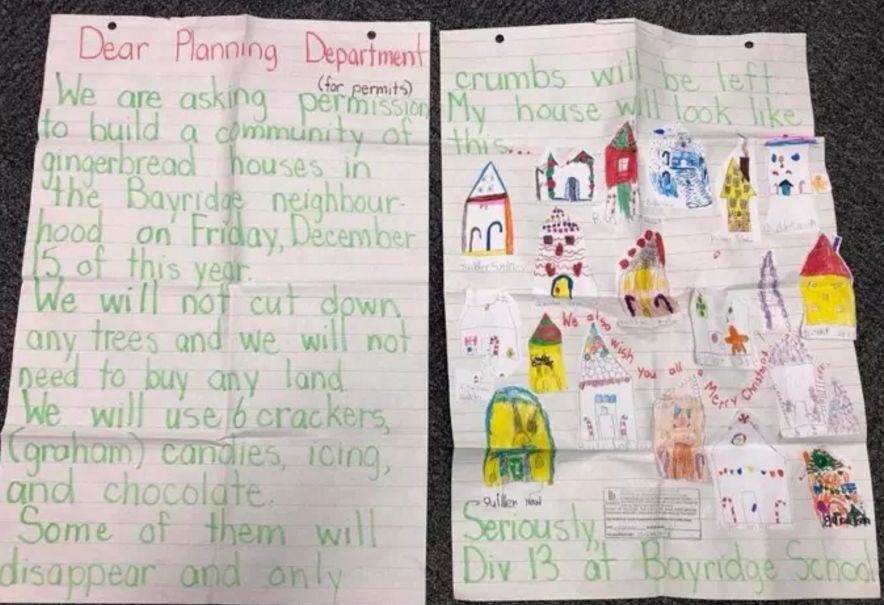 Dear Planning Department
(for permits)
We are asking permission
to build a community of
gingerbread houses in
the Bayridge neighbour-
hood on Friday, December
15 of this year.
We will not cut down
any trees and we will not
need to buy any land.
We will use 6 crackers,
(graham) candies, icing,
and chocolate.
Some of them will
disappear and only
crumbs will be left.
My house will look like
this...
We also wish you all a Merry Christmas!
Seriously,
Div 13 at Bayridge School